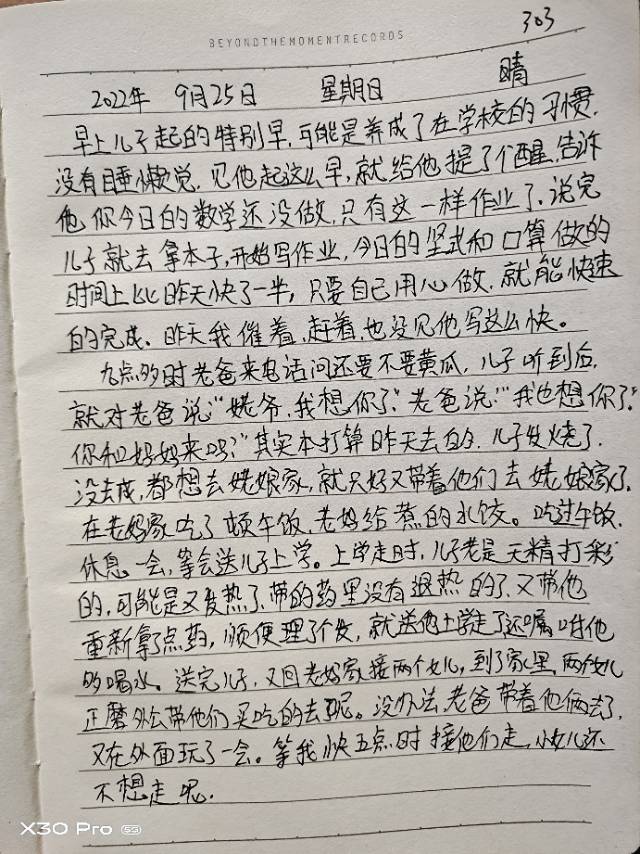 303
BEYONDTHEMOMENTRECORDS
2022年 9月25日 星期日 晴
早上儿子起的特别早,可能是养成了在学校的习惯,
没有睡懒觉,见他起这么早,就给他提了个醒,告诉
他你今日的数学还没做,只有这一样作业了,说完
儿子就去拿本子,开始写作业,今日的竖式和口算做的
时间上比昨天快了一半,只要自己用心做,就能快速
的完成、昨天我催着,赶着,也没见他写这么快。
九点多时老爸来电话问还要不要黄瓜,儿子听到后,
就对老爸说:"姥爷,我想你了",老爸说:"我也想你了,"
你和妈妈来吗?"其实本打算昨天去的,儿子发烧了,
没去成,都想去姥娘家,就只好又带着他们去姥娘家了,
在老妈家吃了顿午饭,老妈给煮的水饺。吃过午饭,
休息一会,等会送儿子上学。上学走时,儿子老是无精打彩
的,可能是又发热了,带的药里没有退热的了,又带他
重新拿了点药,顺便理了个发,就送他上学走了还嘱咐他
多喝水。送完儿子,又回老妈家接两个女儿,到了家里,两个女儿
正磨外公带他们买吃的去呢。没办法,老爸带着他俩去了,
又在外面玩了一会。等我快五点时接他们走,小女儿还
不想走呢.
X30 Pro 5G